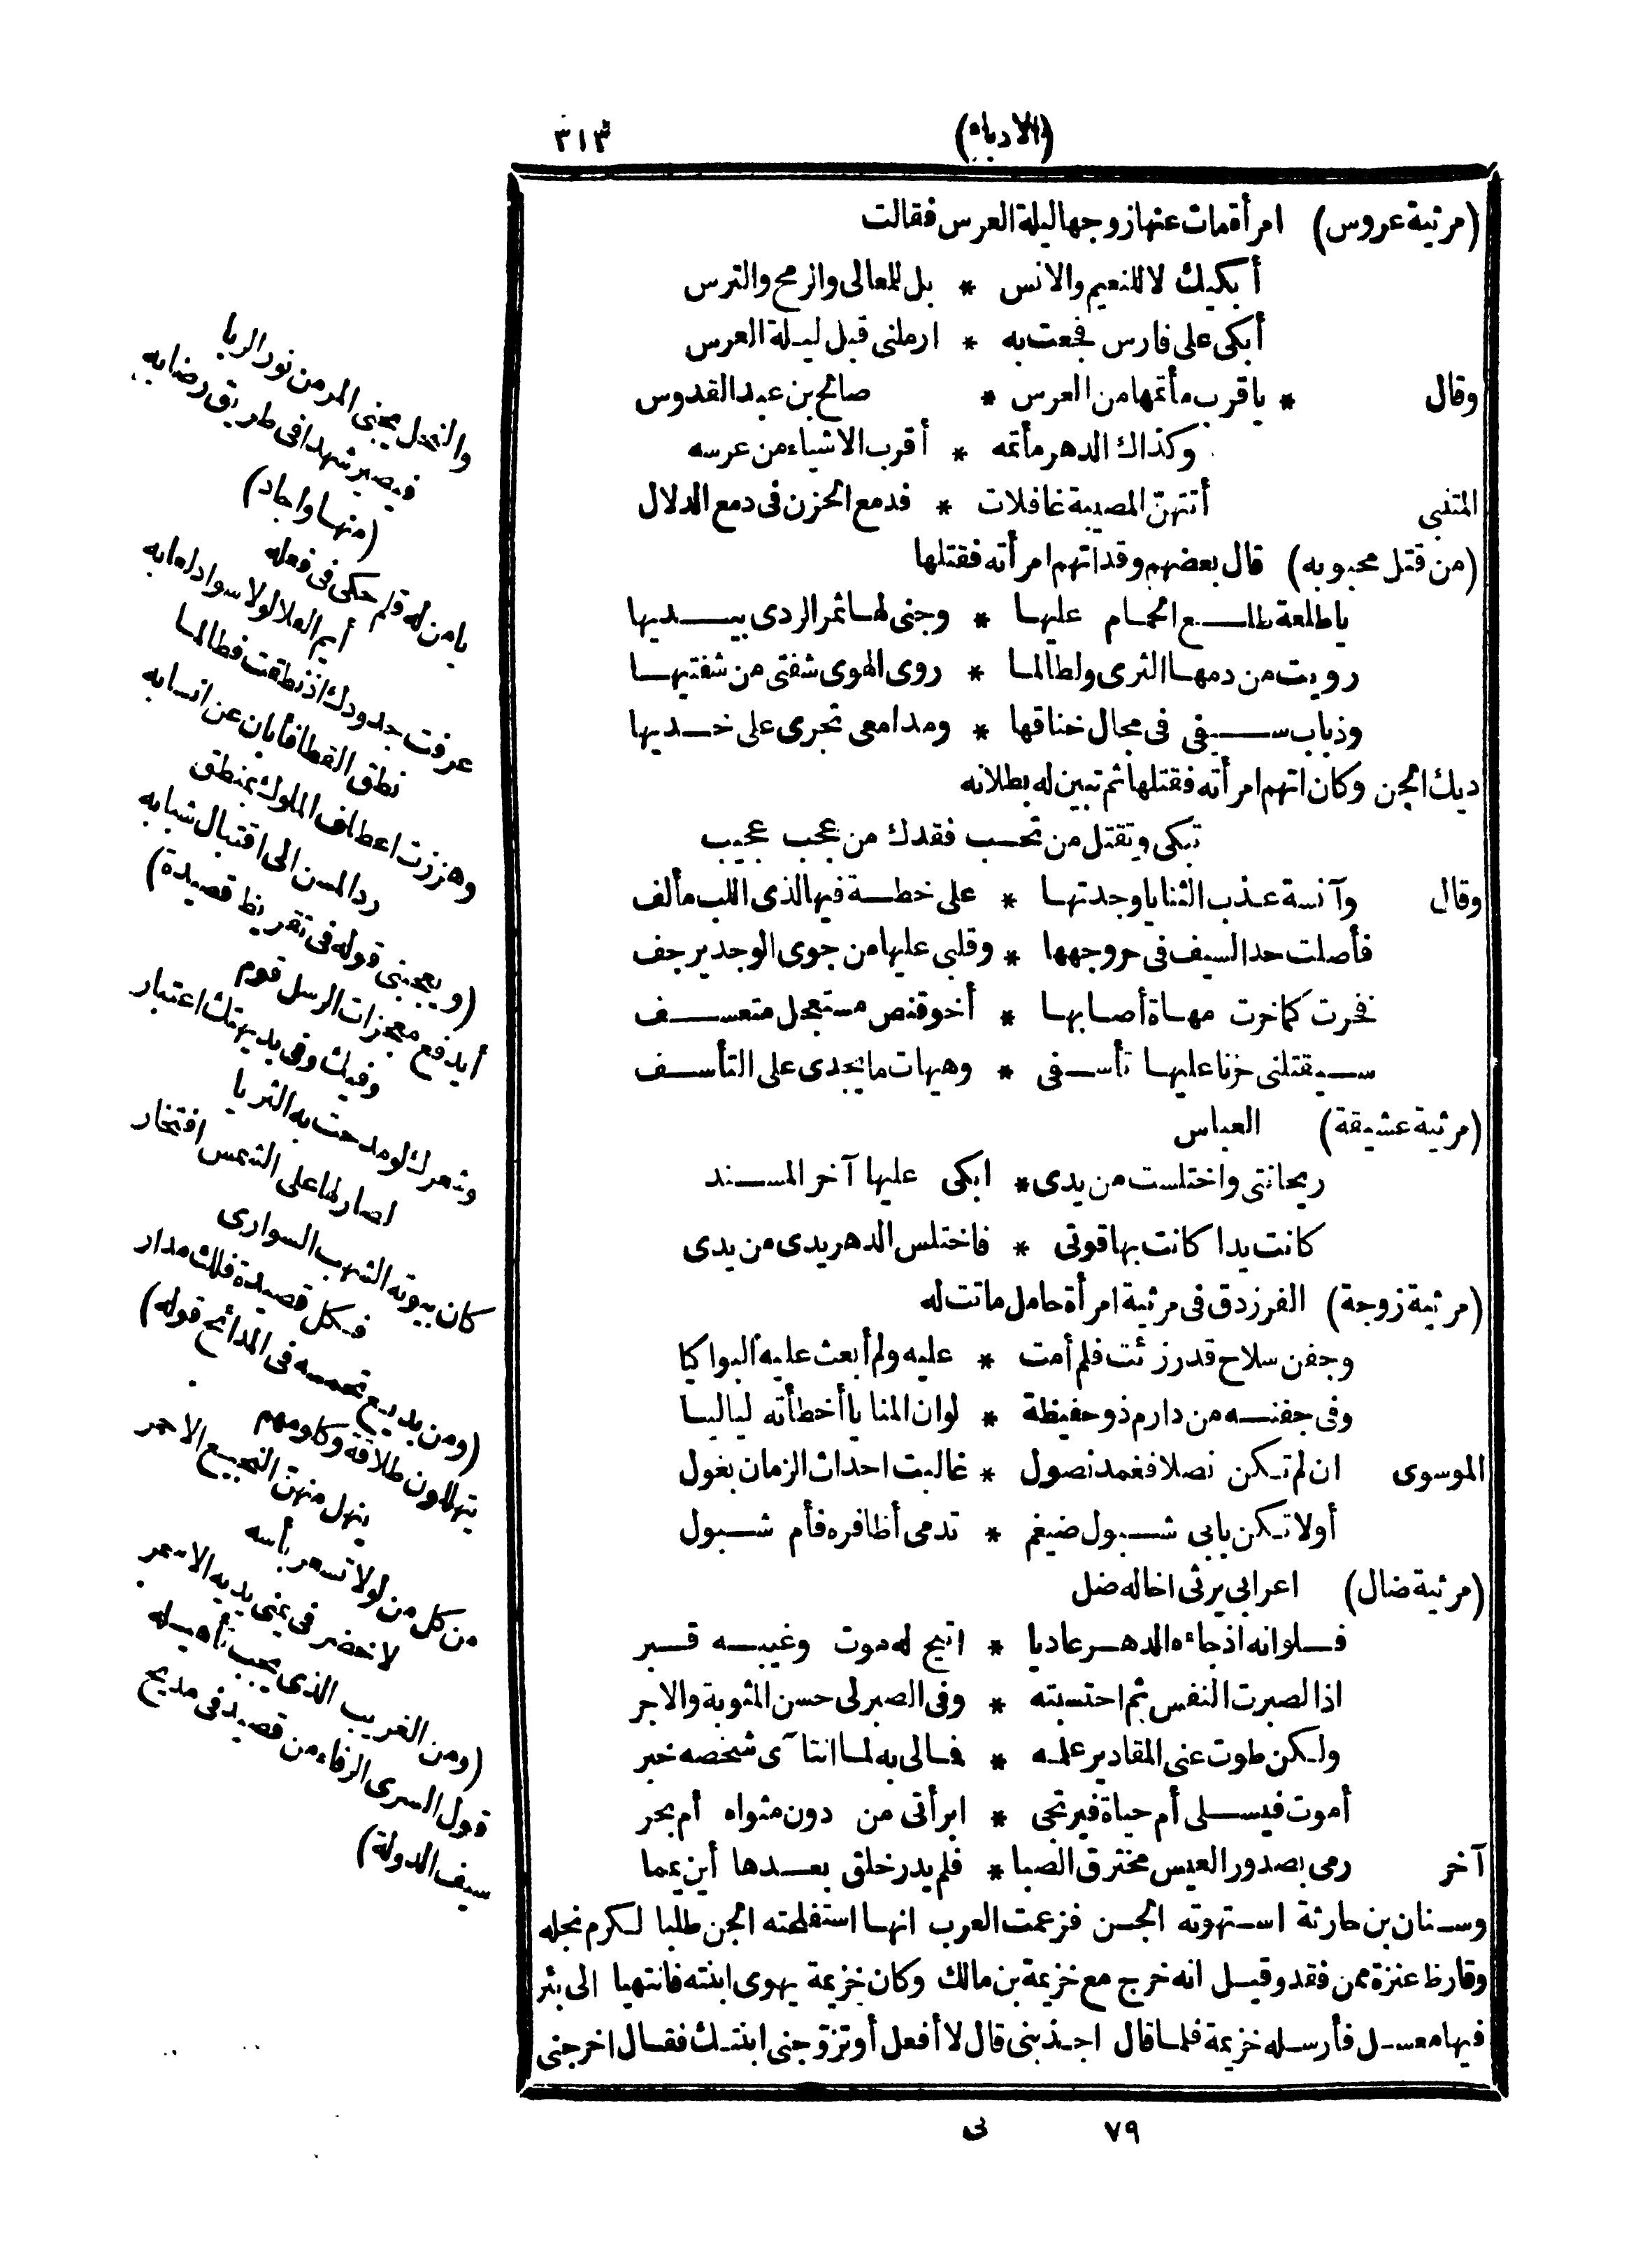 (الادباء) ٣١٣
(مرثية عروس) امرأة مات عنها زوجها ليلة العرس فقالت
أبكيك لا للنعيم والانس * بل للمعالى والرمح والترس
أبكى على فارس فجعت به * ارملنى قبل ليلة العرس
وقال * يا قرب مأتمها من العرس * صالح بن عبد القدوس
وكذاك الدهر مأتمه * أقرب الاشياء من عرسه
المتنبى أتتهنّ المصيبة غافلات * فدمع الحزن فى دمع الدلال
(من قتل محبوبه) قال بعضهم وقد اتهم امرأته فقتلها
يا طلعة طلع الحمام عليها * وجنى لها ثمر الردى بيديها
رويت من دمها الثرى ولطالما * روى الهوى شفتى من شفتيها
وذباب سيفى فى مجال خناقها * ومدامعى تجرى على خديها
ديك الجن وكان اتهم امرأته فقتلها ثم تبين له بطلانه
تبكى وتقتل من تحسب فقدك من عجب عجيب
وقال وآنسة عذب الثنايا وجدتها * على خطة فيها لذى اللب مألف
فأصلت حد السيف فى حر وجهها * وقلبى عليها من جوى الوجد يرجف
فخرت كما خرت مهاة أصابها * أخو قنص مستعجل متعسف
سيقتلنى حزنا عليها تأسفى * وهيهات ما يجدى على التأسف
(مرثية عشيقة) العباس
ريحانتى واختلست من يدى * ابكى عليها آخر المسند
كانت يدا كانت بها قوتى * فاختلس الدهر يدى من يدى
(مرثية زوجة) الفرزدق فى مرثية امرأة حامل ماتت له
وجفن سلاح قد رزئت فلم أمت * عليه ولم أبعث عليه البواكيا
وفى جفنه من دارم ذو حفيظة * لو ان المنايا أخطأته لياليا
الموسوى ان لم تكن نصلا فغمد نصول * غالبت احداث الزمان بغول
أو لا تكن بابى شبول ضيغم * تدمى أظافره فأم شبول
(مرثية ضال) اعرابى يرثى اخا له ضل
فلو انه اذ جاءه الدهر عاديا * اتيح له موت وغيبه قبر
اذا لصبرت النفس ثم احتسبته * وفى الصبر لى حسن المثوبة والاجر
ولكن طوت عنى المقادير علمه * فمالى به لما انتآى شخصه خبر
أموت فيسلى أم حياة فيرتجى * ابرأتى من دون مثواه أم بحر
آخر رمى بصدور العيس مخترق الصبا * فلم يدر خلق بعدها أين يمما
وسنان بن حارثة استهوته الجن فزعمت العرب انها استفلحته الجن طلبا لكرم نجله
وقارظ عنزة ممن فقد وقيل انه خرج مع خزيمة بن مالك وكان خزيمة يهوى ابنته فانتهيا الى بئر
فيها معسل فأرسله خزيمة فلما قال اجذبنى قال لا أفعل أو تزوّجنى ابنتك فقال اخرجنى
٧٩ نى
والنحل يجنى المر من نور الربا
فيصير شهدا فى طريق رضابه
(منها واجاد)
يا من له قلم حكى فى فعله
أيم العلا لولا سواد لعابه
عرفت جدودك اذ نطقت فطالما
نطق القطا فأبان عن انسابه
وهززت اعطاف الملوك بمنطق
رد المسن الى اقتبال شبابه
(ويعجبنى قوله فى تقريظ قصيدة)
أيدفع معجزات الرسل قوم
وفيك وفى بديهتك اعتبار
وشعرك لو مدحت به الثريا
لصار لها على الشمس افتخار
كان بيوته الشهب السوارى
فكل قصيدة فلك مدار
(ومن بديع تحمسه فى المدائح قوله)
يتهللون طلاقة وكلومهم
ينهل منهن النجيع الاحمر
من كل من لولا تسعر بأسه
لاخضر فى يمنى يديه الاسمر
(ومن الغريب الذى يجب تأهيله
قول السرى الرفاء من قصيد فى مديح
سيف الدولة)